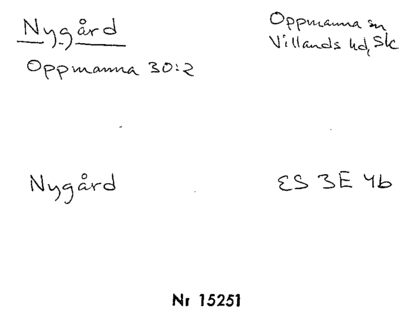 Nygård
Oppmanna sn
Villands hd, Sk
Oppmanna 30:2
Nygård
ES 3E 4b
Nr 15251